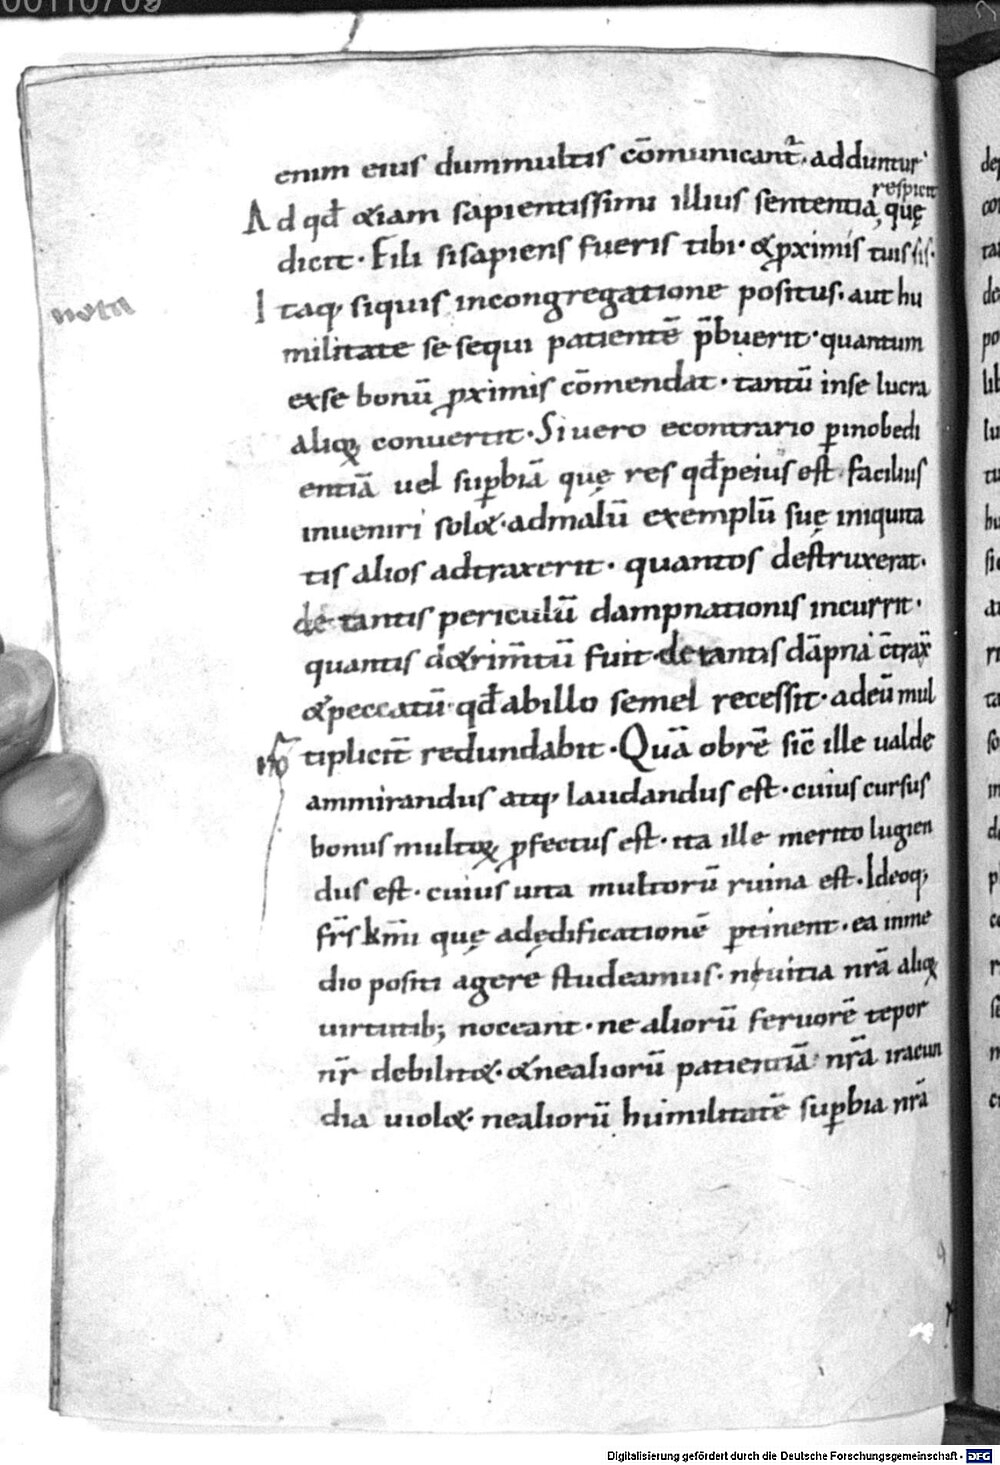 00110709
enim eius dummultis cōmunicant᷑. adduntur
respicit
Ad qđ &iam sapientissimi illius sententia, quę
dicit · Fili sisapiens fueris tibi · & ꝓximis tuis sis ·
nota
Itaq, siquis incongregatione positus. aut hu
militate se sequi patientē p̄buerit · quantum
exse bonū ꝓximis cōmendat · tantū inse lucra
alioꝝ conuertit · Si uero econtrario ꝑinobedi
entiā uel suꝑbiā quę res qđ peius est facilius
inueniri sol& · admalū exemplū suę iniquita
tis alios adtraxerit · quantos destruxerat ·
de tantis periculū dampnationis incurrit ·
quantis d&rim̄tū fuit de tantis dāpna c̄trax̄
& peccatū · qđ abillo semel recessit · adeū mul
tiplicit̄ redundabit · Quā obrē sic̄ ille ualde
ammirandus atq, laudandus est · cuius cursus
bonus multoꝝ ꝓfectus est · ita ille merito lugien
dus est · cuius uita multorū ruina est · Ideoq,
fr̄s km̄i quę adędificationē ꝑtinent · ea inme
dio positi agere studeamus · neuitia nr̄a alioꝝ
uirtutib; noceant · ne aliorū feruorē tepor
nr̄ debilit& · & nealiorū patientiā nr̄a iracun
dia uiol& · nealiorū humilitatē suꝑbia nr̄a
Digitalisierung gefördert durch die Deutsche Forschungsgemeinschaft - DFG